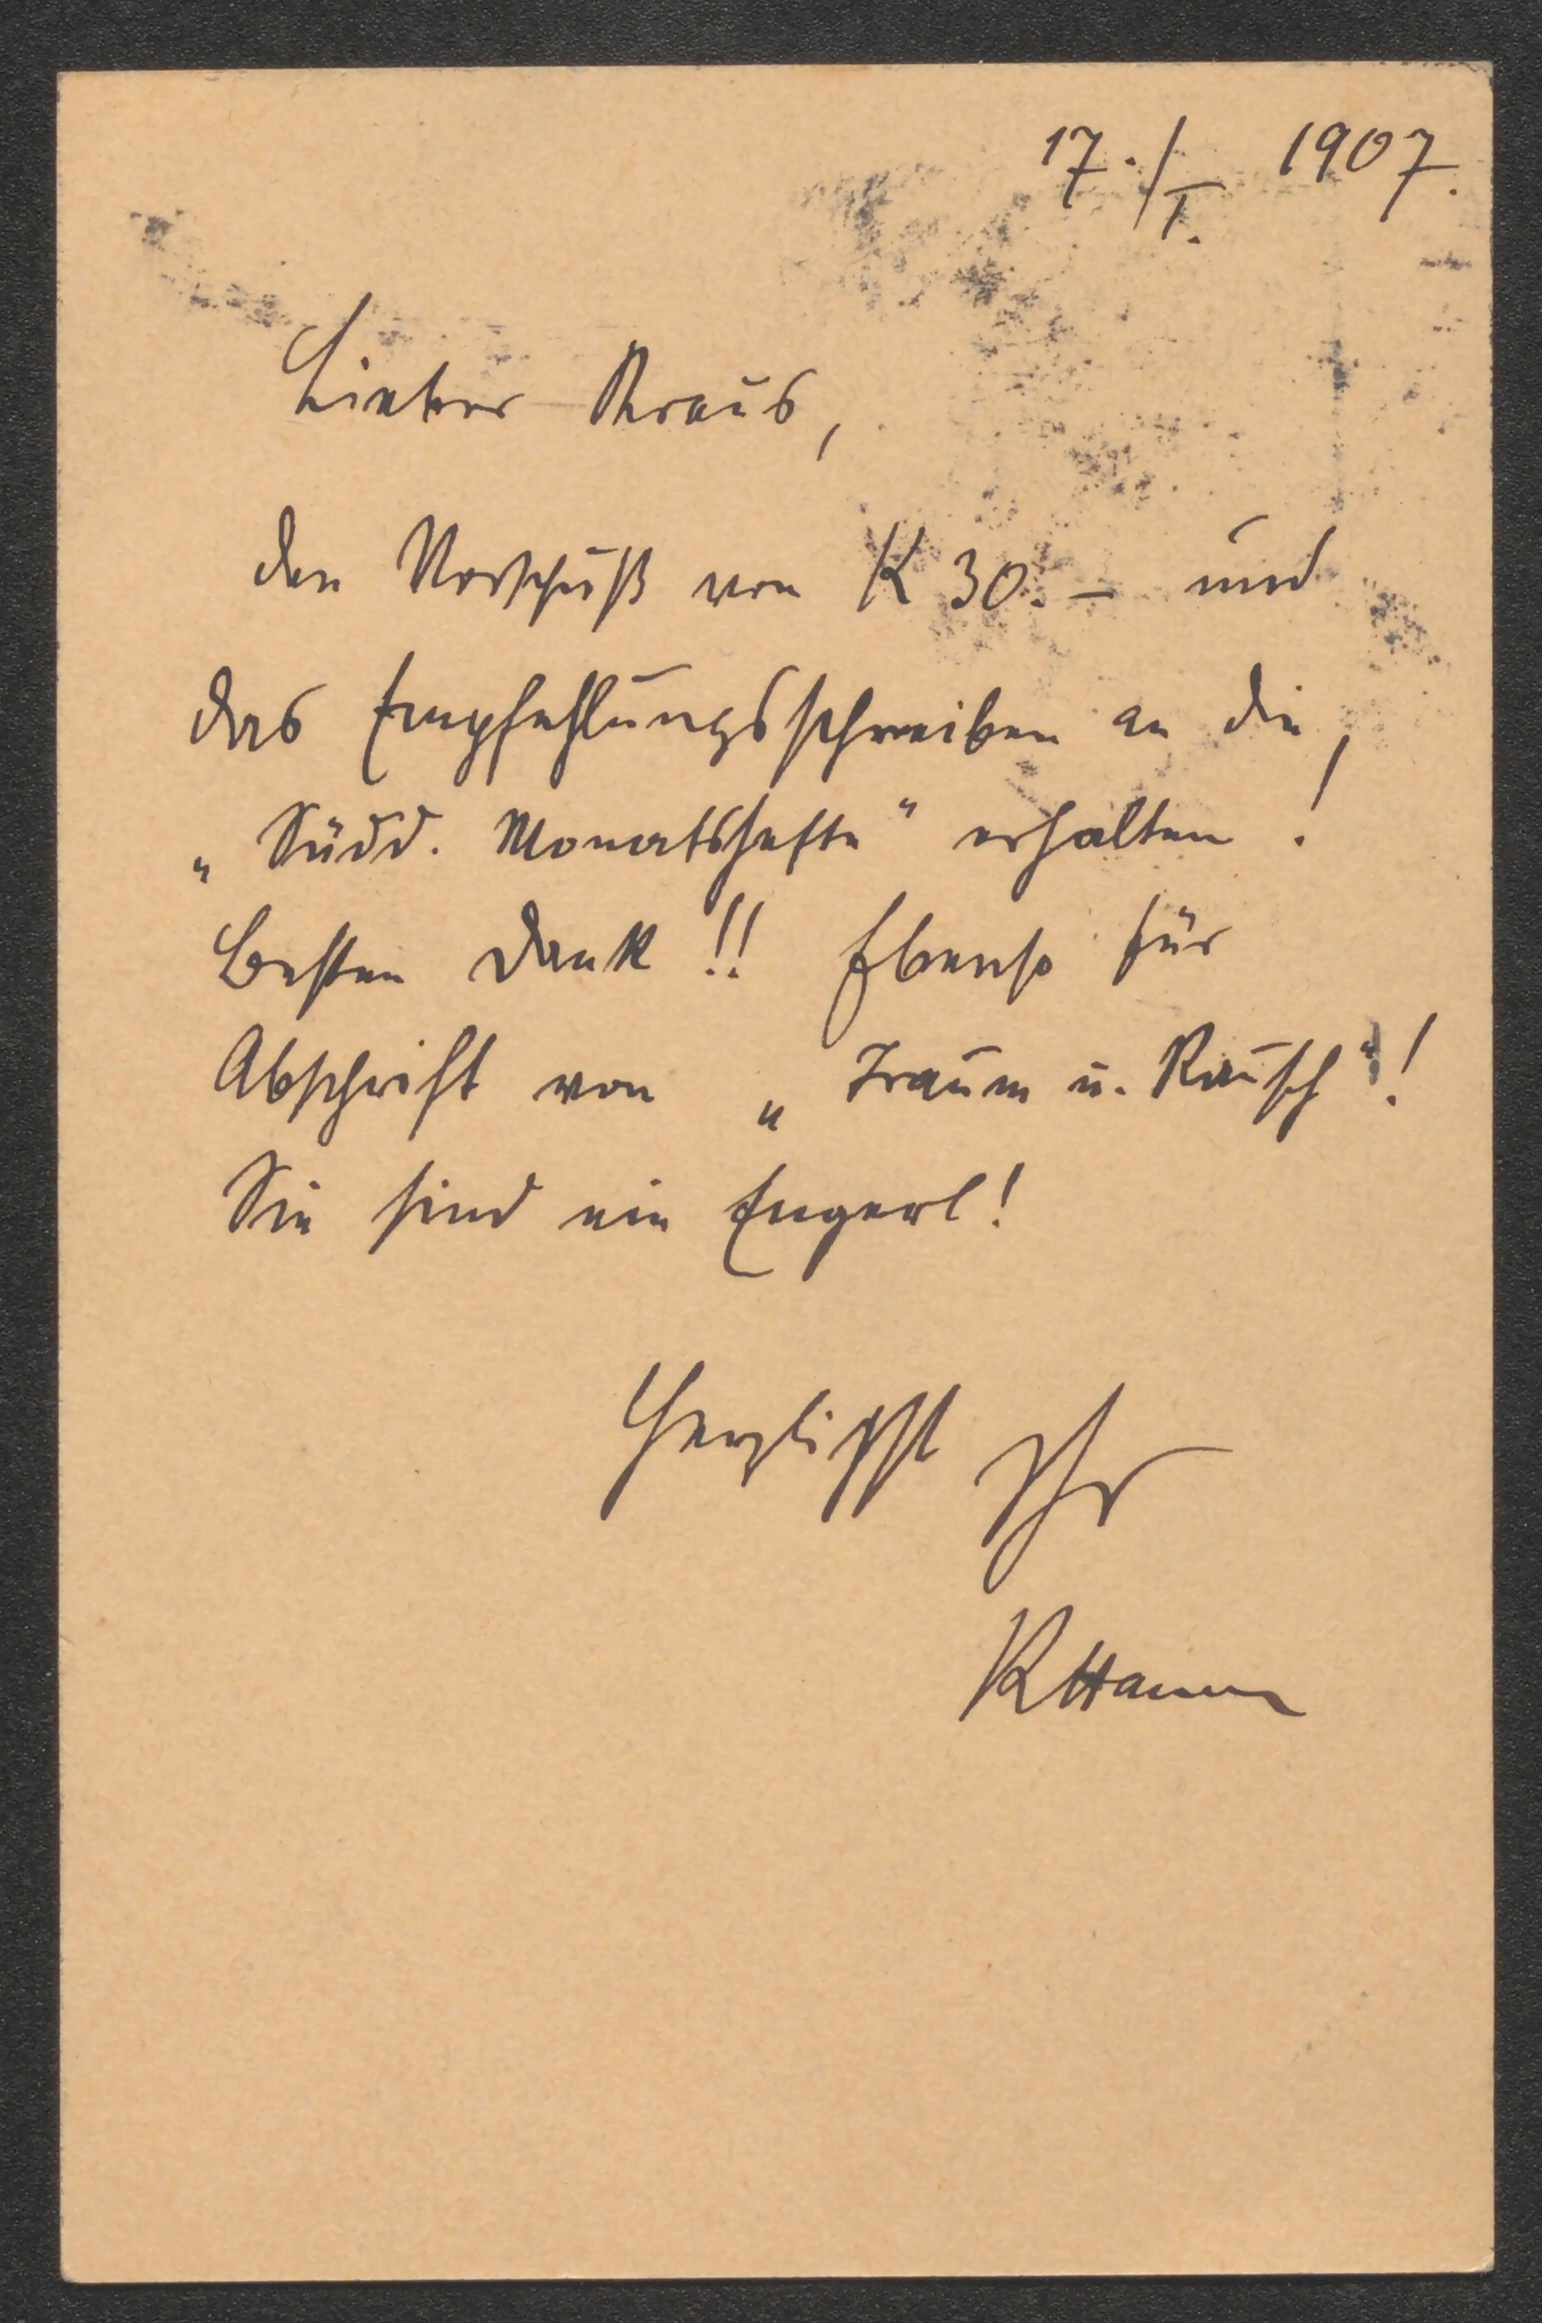 17./I. 1907.
Lieber Kraus,
den Vorschuß von K 30.– und
das Empfehlungsschreiben an die
„Südd. Monatshefte“ erhalten!
Besten Dank!! Ebenso für
Abschrift von „Traum u. Rausch“!
Sie sind ein Engerl!
Herzlichst Ihr